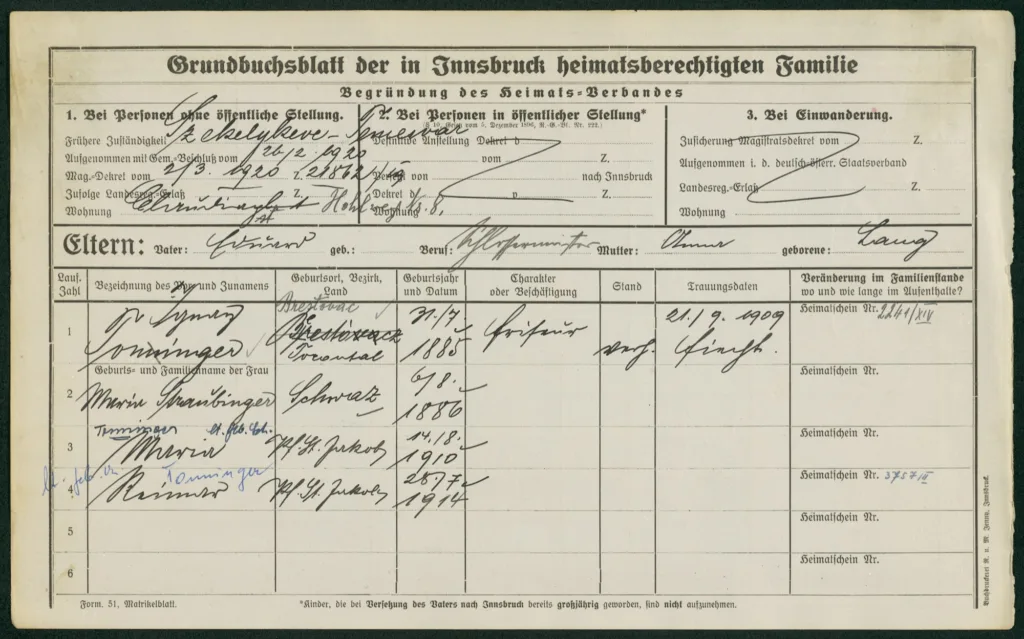 Grundbuchsblatt der in Innsbruck heimatsberechtigten Familie
Begründung des Heimats-Verbandes
1. Bei Personen ohne öffentliche Stellung.
Frühere Zuständigkeit Szekelykeve - Temesvar
Aufgenommen mit Gem.-Beschluß vom 26/2. 1920
Mag.-Dekret vom 2/3. 1920 Z.
Zufolge Landesreg.-Erlaß Z.
Wohnung Claudia Hohlweg No. 8.
2. Bei Personen in öffentlicher Stellung*
(§ 10, Gesetz vom 5. Dezember 1896, R.-G.-Bl. Nr. 222.)
Definitive Anstellung Dekret d
vom Z.
Versetzt von nach Innsbruck
Dekret d v Z.
Wohnung
3. Bei Einwanderung.
Zusicherung Magistratsdekret vom Z.
Aufgenommen i. d. deutsch-österr. Staatsverband
Landesreg.-Erlaß Z.
Wohnung
Eltern: Vater: Eduard geb.: Beruf: Schlossermeister Mutter: Anna geborene: Lang
Lauf. Zahl
Bezeichnung des Vor- und Zunamens
Geburtsort, Bezirk, Land
Geburtsjahr und Datum
Charakter oder Beschäftigung
Stand
Trauungsdaten
Veränderung im Familienstande
wo und wie lange im Aufenthalte?
Brestovac
1 Ignaz Brestovacz 31./7. Friseur 21./9. 1909 Heimatschein Nr. 2241/XIV
Tonninger Torontal 1885 verh. Fiecht.
Geburts- und Familienname der Frau
2 Maria Straubinger Schwaz 6/8. 1886 Heimatschein Nr.
Tonninger
3 Maria Pf. St. Jakob 14./8. 1910 Heimatschein Nr.
Tonninger
4 Reimar Pf. St. Jakob 28./7. 1914 Heimatschein Nr. 3757/III
5 Heimatschein Nr.
6 Heimatschein Nr.
Form. 51, Matrikelblatt.
*Kinder, die bei Versetzung des Vaters nach Innsbruck bereits großjährig geworden, sind nicht aufzunehmen.
Buchdruckerei R. u. M. Jenny, Innsbruck.